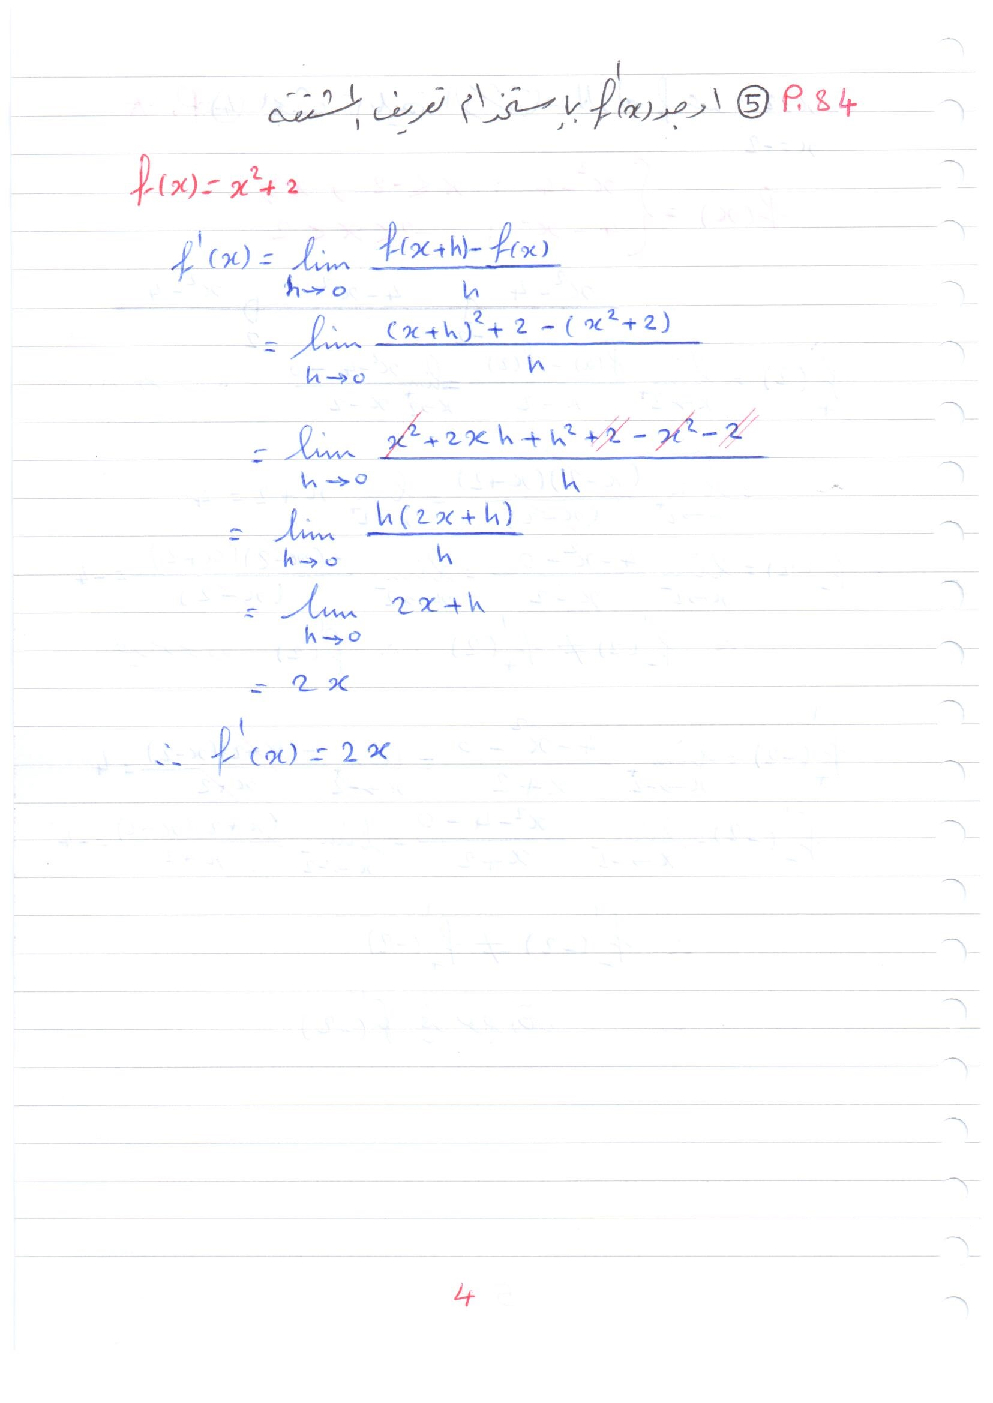 P. 84 ⑤ اوجد f'(x) باستخدام تعريف المشتقة
f(x) = x² + 2
f'(x) = lim h→0 (f(x+h) - f(x)) / h
= lim h→0 ((x+h)² + 2 - (x² + 2)) / h
= lim h→0 (x² + 2xh + h² + 2 - x² - 2) / h
= lim h→0 h(2x + h) / h
= lim h→0 2x + h
= 2x
∴ f'(x) = 2x
4